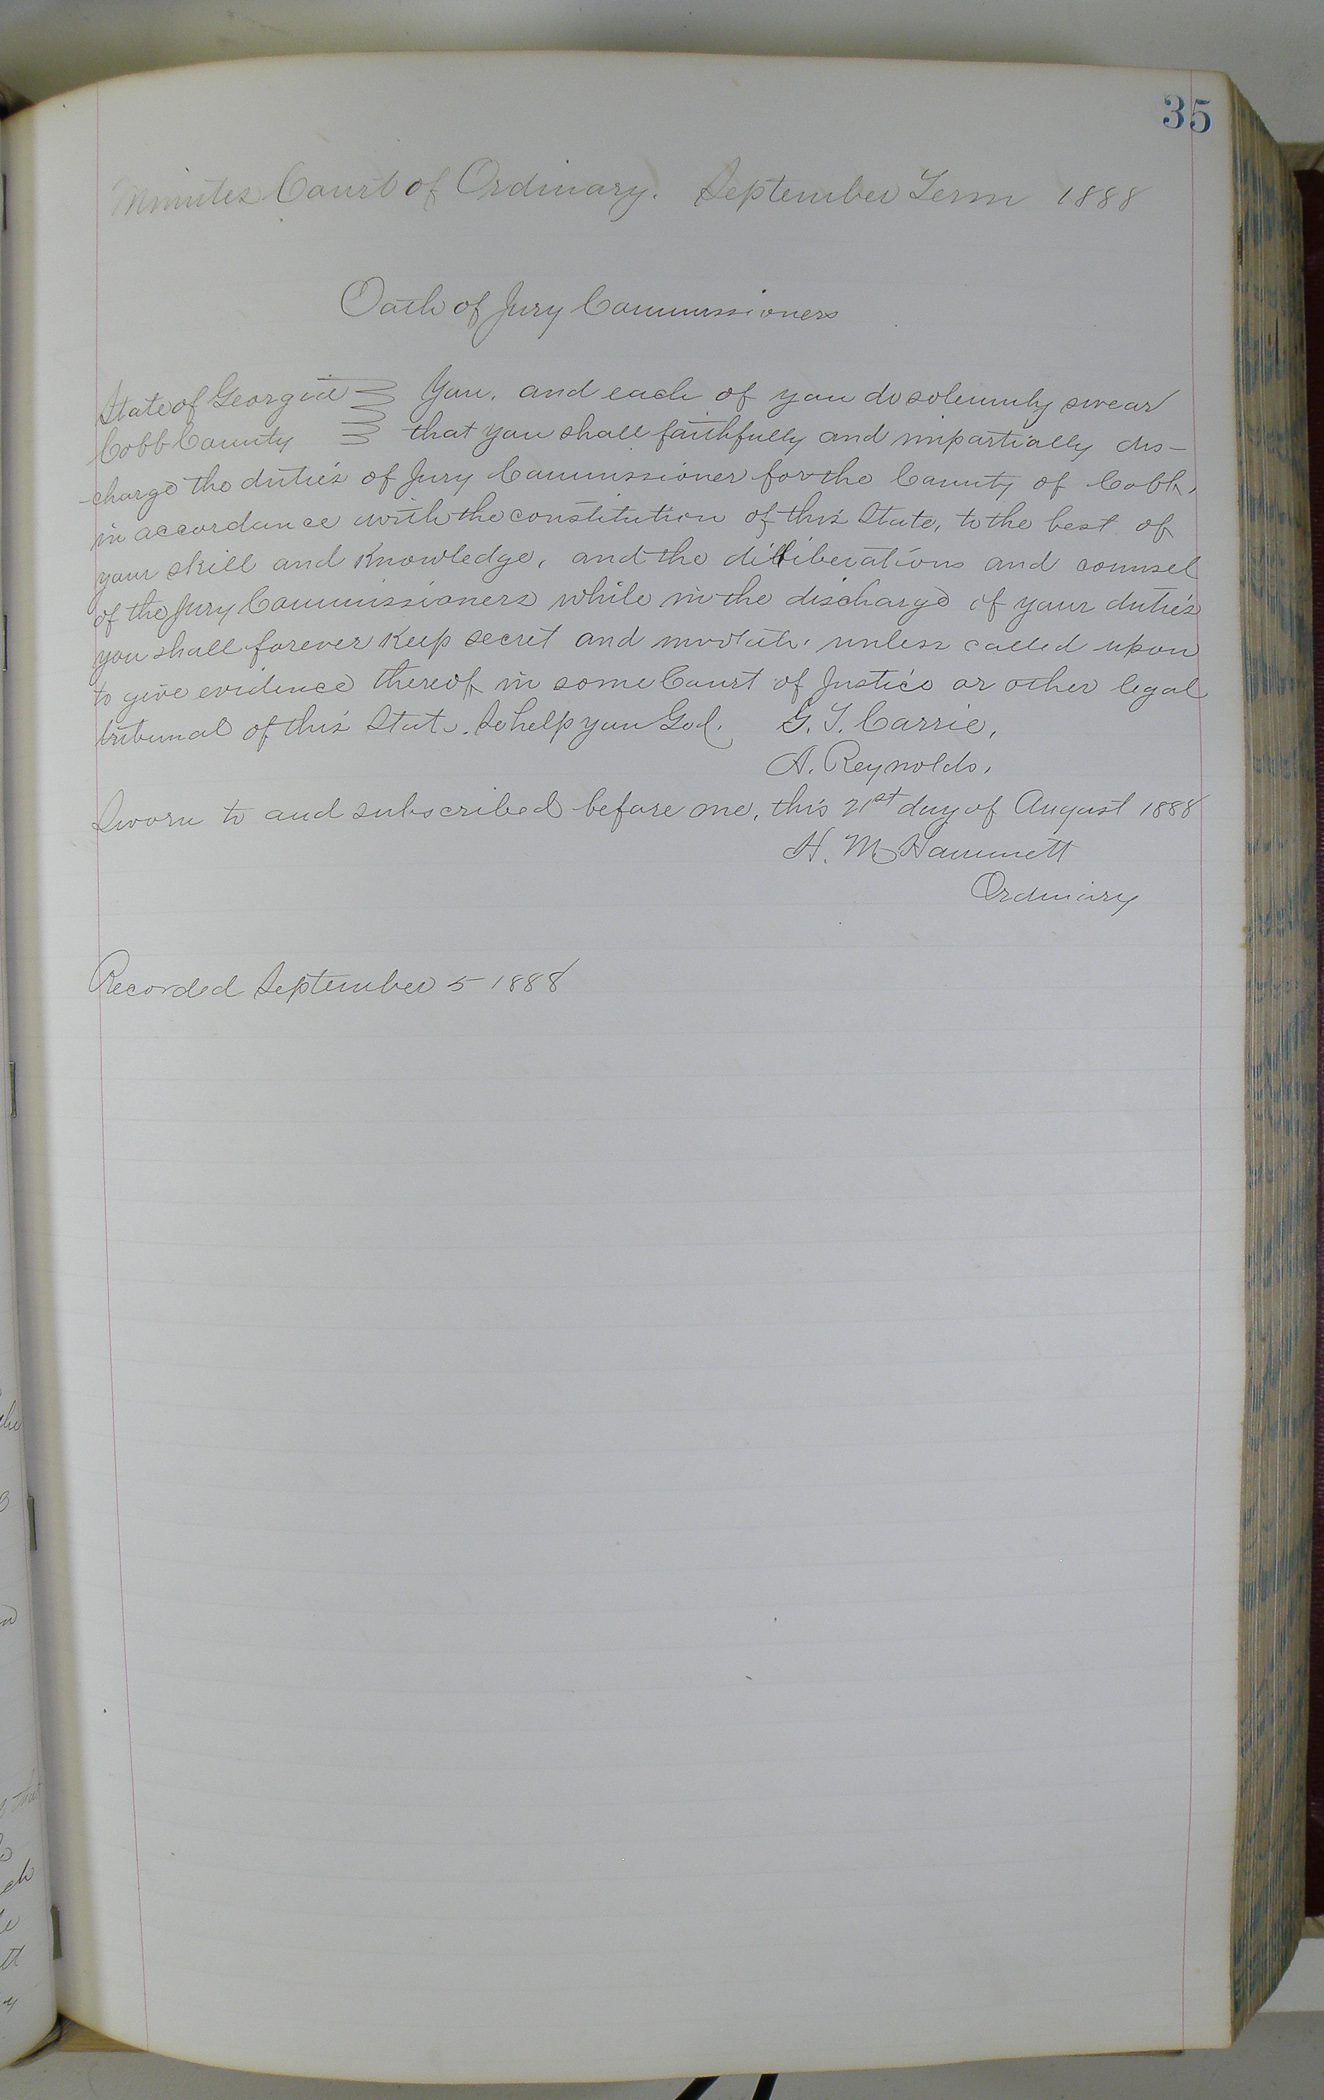 35
Minutes Court of Ordinary. September Term 1888
Oath of Jury Commissioners
State of Georgia You, and each of you do solemnly swear
Cobb County that you shall faithfully and impartially dis-
-charge the duties of Jury Commissioner for the County of Cobb,
in accordance with the constitution of this State, to the best of
your skill and knowledge, and the deliberations and counsel
of the Jury Commissioners while in the discharge of your duties
you shall forever keep secret and inviolate, unless called upon
to give evidence thereof in some Court of Justice or other legal
tribunal of this State. So help you God. G. T. Carrie,
A. Reynolds,
Sworn to and subscribed before me, this 21st day of August 1888
H. M. Hammett
Ordinary
Recorded September 5 1888